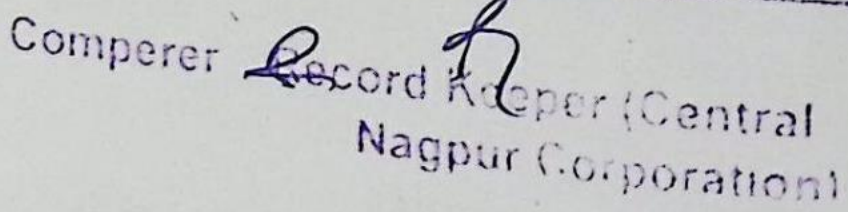 Comperer Record Keeper (Central
Nagpur Corporation)